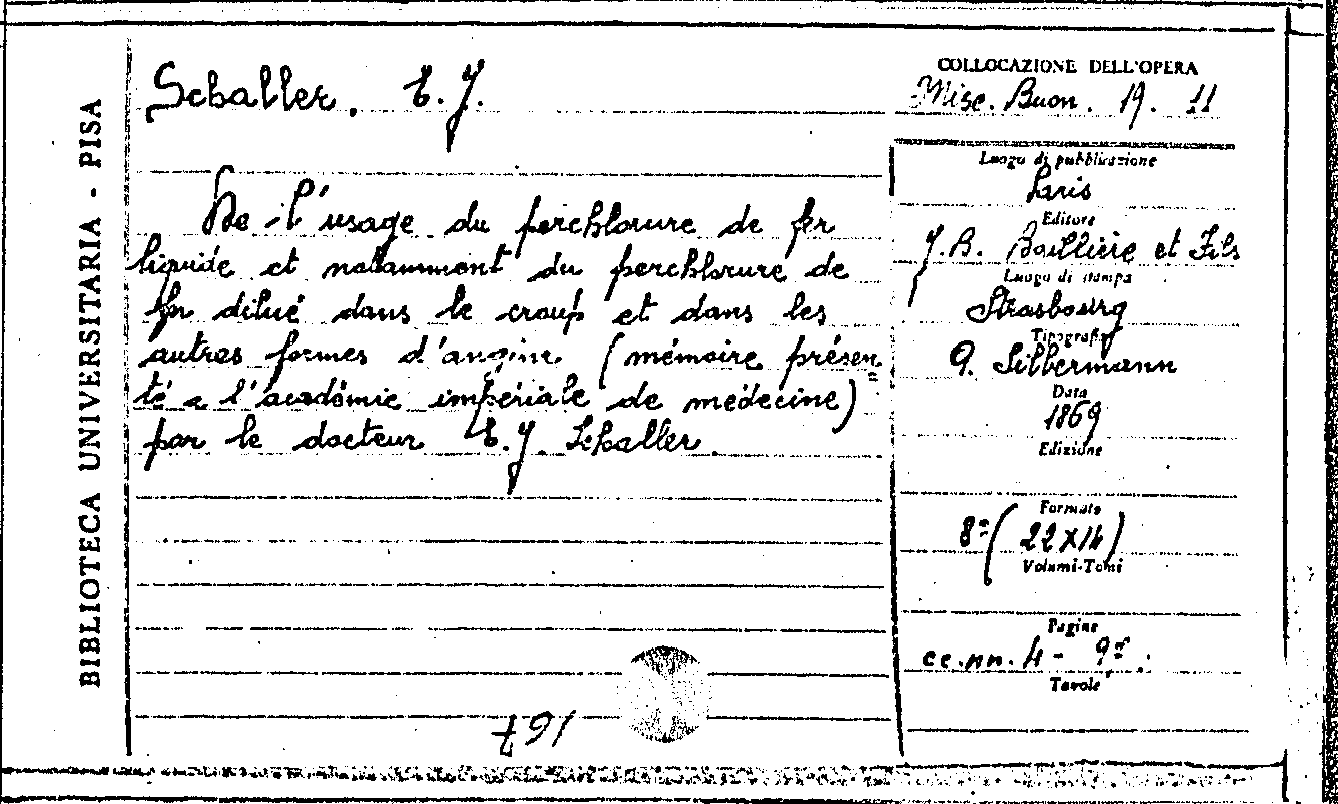 BIBLIOTECA UNIVERSITARIA - PISA
Schaller. E. J.
De l'usage du perchlorure de fer
liquide et notamment du perchlorure de
fer dilué dans le croup et dans les
autres formes d'angine (mémoire présen
té a l'académie impériale de médecine)
par le docteur E. J. Schaller.
167
COLLOCAZIONE DELL'OPERA
Misc. Buon. 19. 11
Luogo di pubblicazione
Paris
Editore
J. B. Baillière et Fils
Luogo di stampa
Strasbourg
Tipografo
G. Silbermann
Data
1869
Edizione
Formato
8° (22x14)
Volumi-Tomi
Pagine
cc.nn. 4 -
Tavole